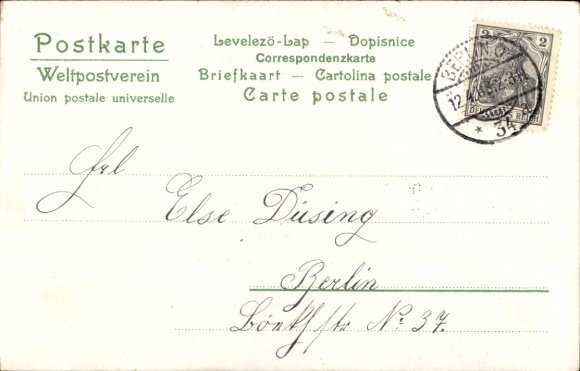 Postkarte
Weltpostverein
Union postale universelle
Levelező-Lap — Dopisnice
Correspondenzkarte
Briefkaart — Cartolina postale
Carte postale
2 2
DEUTSCHES REICH
BERLIN O
12.4.
* 34 a
Frl
Else Düsing
Berlin
No: 37.